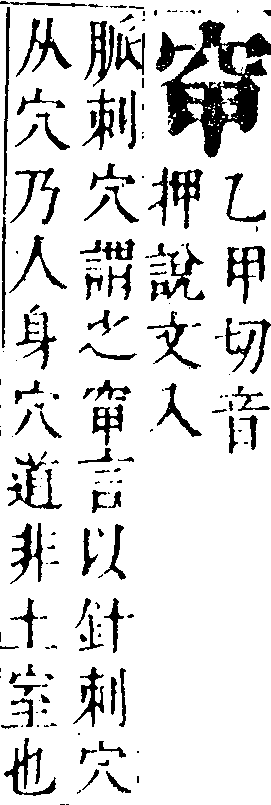 窀
乙甲切音
押說文入
脈刺穴謂之窀言以針刺穴
从穴乃人身穴道非土室也